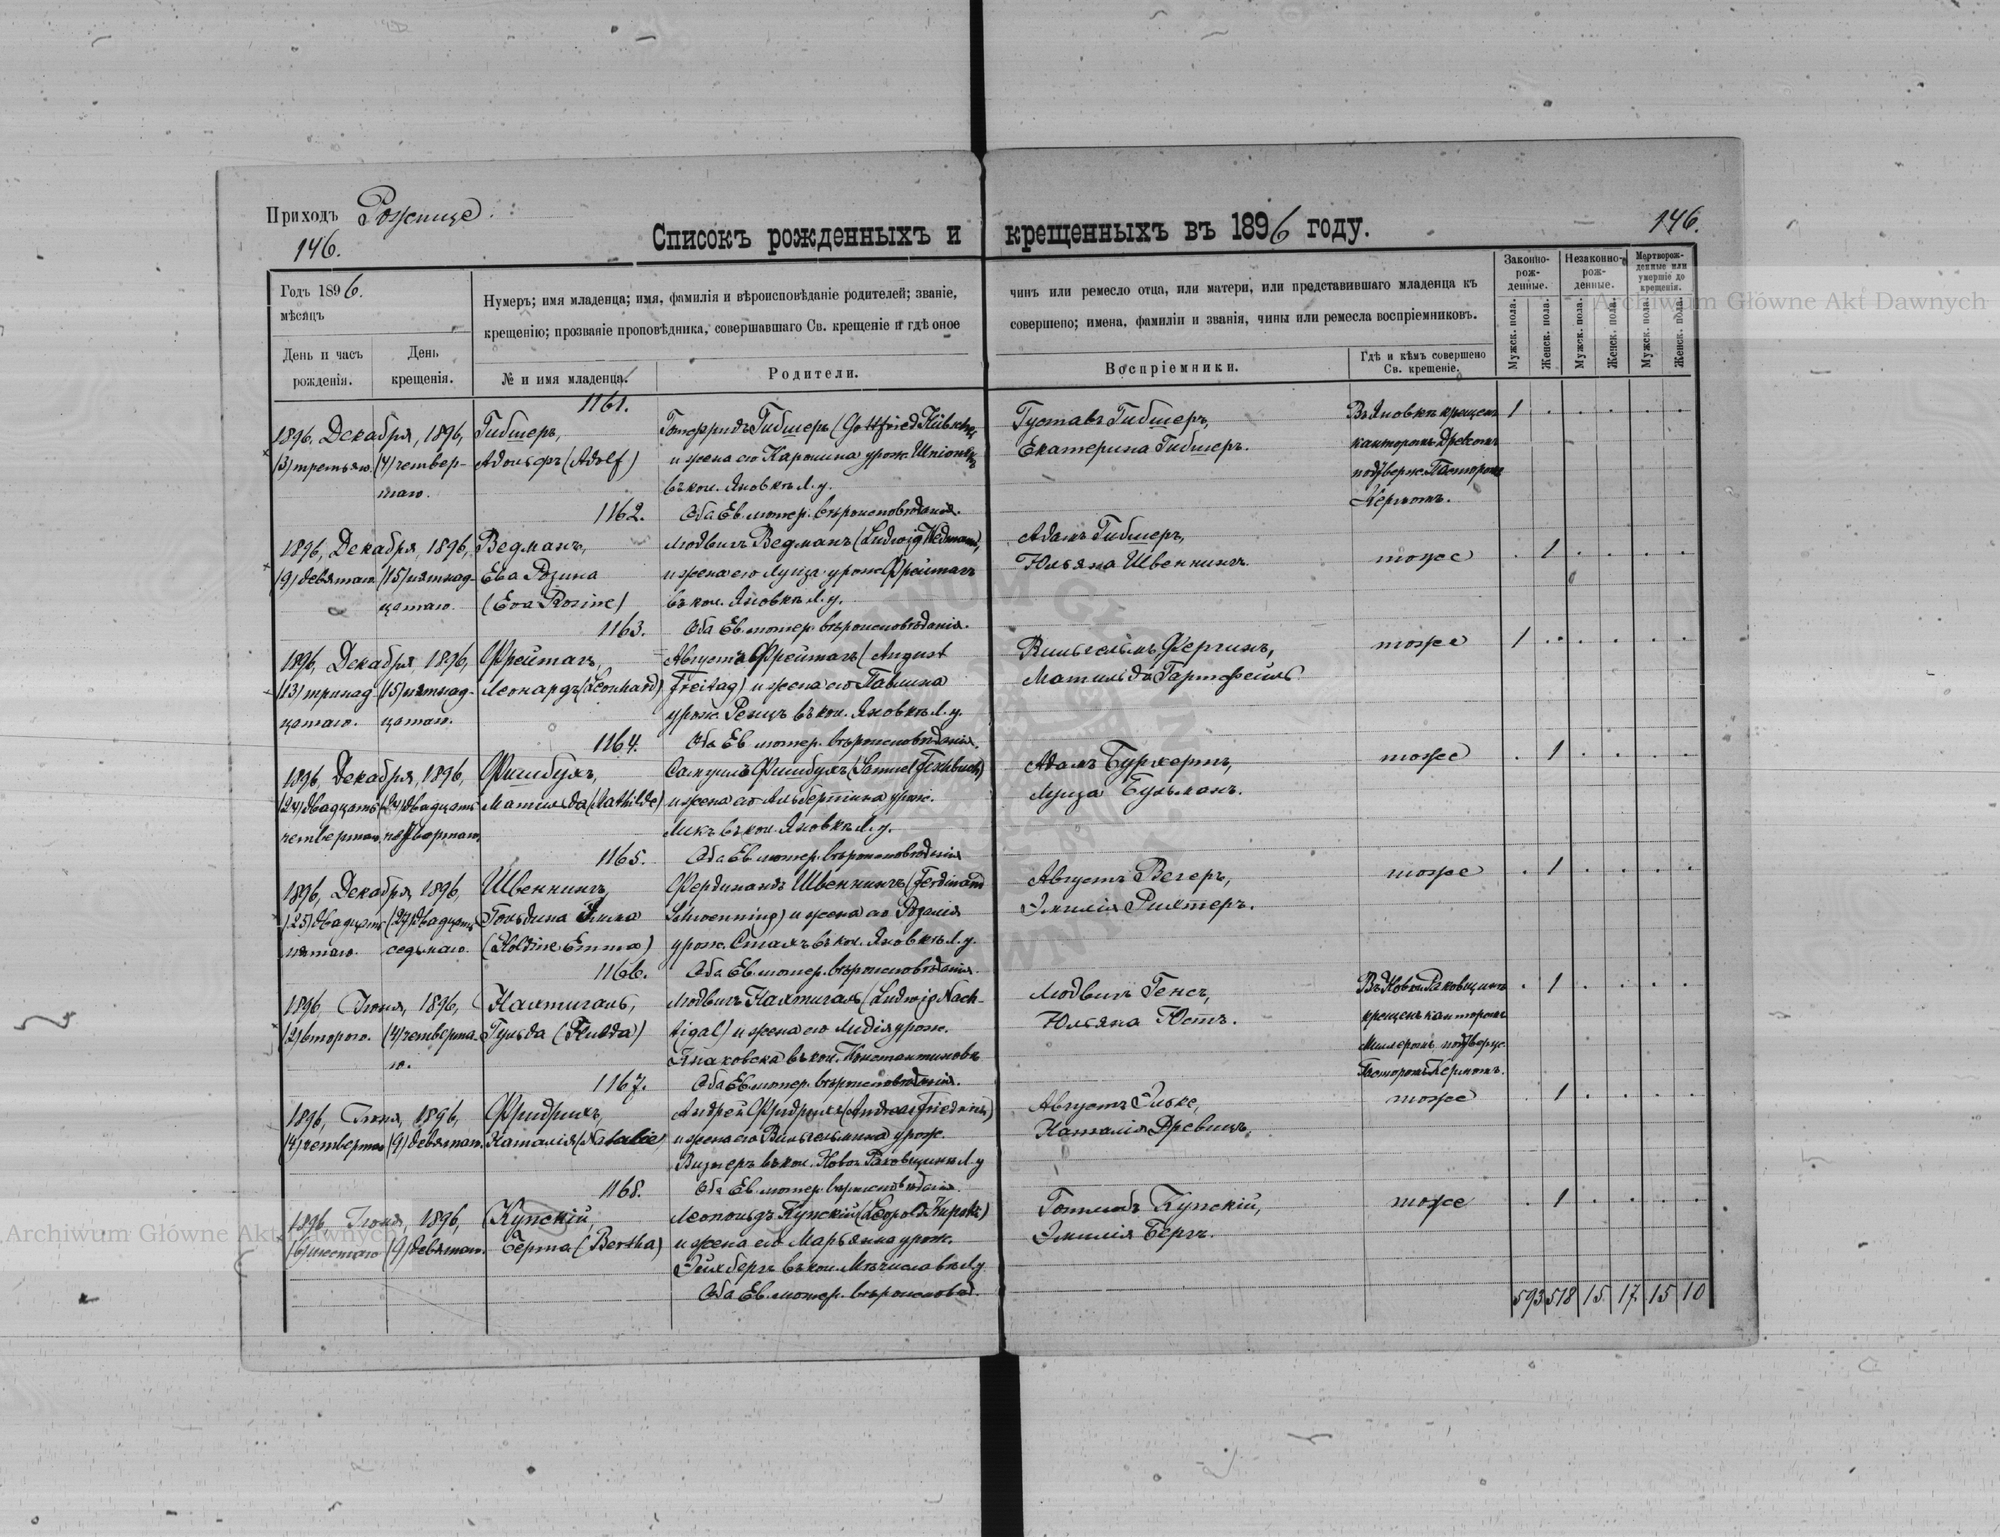 Приходъ Рожище.
146.
146.
Списокъ рожденныхъ и крещенныхъ въ 1896 году.
Годъ 1896.
мѣсяцъ
День и часъ рожденія.
День крещенія.
Нумеръ; имя младенца; имя, фамилія и вѣроисповѣданіе родителей; званіе, чинъ или ремесло отца, или матери, или представившаго младенца къ
крещенію; прозваніе проповѣдника, совершавшаго Св. крещеніе и гдѣ оное совершено; имена, фамиліи и званія, чины или ремесла воспріемниковъ.
№ и имя младенца.
Родители.
Воспріемники.
Гдѣ и кѣмъ совершено Св. крещеніе.
Законно-рож-денные.
Незаконно-рож-денные.
Мертворож-денные или умершіе до крещенія.
Мужск. пола.
Женск. пола.
Мужск. пола.
Женск. пола.
Мужск. пола.
Женск. пола.
1161.
1896, Декабря, 1896,
(3) третьяго. (4) четвер-
таго.
Гибшеръ,
Адольфъ (Adolf)
Готфридъ Гибшеръ (Gottfried
и жена его Каролина урож.
въ кол. Яновкѣ Л. у.
Оба Ев. лютер. вѣроисповѣданія.
Густавъ Гибшеръ,
Екатерина Гибшеръ.
Въ Яновкѣ крещенъ
канторомъ
подтверж. Пасторомъ
Кермомъ.
1
1162.
1896, Декабря, 1896,
(9) девятаго (15) пятнад-
цатаго.
Ведманъ,
Ева Розина
(Eva Rosine)
Людвигъ Ведманъ (Ludwig Wedmann),
и жена его Луиза урож. Фрейтагъ
въ кол. Яновкѣ Л. у.
Оба Ев. лютер. вѣроисповѣданія.
Адамъ Гибшеръ,
Юльяна Швеннингъ.
тоже
1
1163.
1896, Декабря, 1896,
(13) тринад- (15) пятнад-
цатаго. цатаго.
Фрейтагъ,
Леонардъ (Leonhard)
Августъ Фрейтагъ (August
Freitag) и жена его Павлина
урож. Ренцъ въ кол. Яновкѣ Л. у.
Оба Ев. лютер. вѣроисповѣданія.
Вильгельмъ Фергинъ,
Матильда
тоже
1
1164.
1896, Декабря, 1896,
(24) двадцать (24) двадцать
четвертаго. четвертаго.
Фишбухъ,
Матильда (Mathilde)
Самуилъ Фишбухъ (Samuel Fischbuch)
и жена его Альбертина урож.
Ликъ въ кол. Яновкѣ Л. у.
Оба Ев. лютер. вѣроисповѣданія
Адамъ Буркертъ,
Луиза Бульманъ.
тоже
1
1165.
1896, Декабря, 1896,
(25) двадцать (27) двадцать
пятаго. седьмаго.
Швеннингъ,
Гольдина Эмма
(Holdine Emma)
Фердинандъ Швеннингъ (Ferdinand
Schwenning) и жена его Розалія
урож. Сталъ въ кол. Яновкѣ Л. у.
Оба Ев. лютер. вѣроисповѣданія.
Августъ Вегеръ,
Эмилія Рихтеръ.
тоже
1
1166.
1896, Іюня, 1896,
(2) второго. (4) четверта-
го.
Нахтигаль,
Гульда (Hulda)
Людвигъ Нахтигаль (Ludwig Nach-
tigal) и жена его Лидія урож.
въ кол. Константиновкѣ
Оба Ев. лютер. вѣроисповѣданія.
Людвигъ Генсъ,
Юльяна Юстъ.
крещенъ канторомъ
Миллеромъ подтверж.
Пасторомъ Кермомъ.
1
1167.
1896, Іюня, 1896,
(4) четвертаго (9) девятаго.
Фридрихъ,
Наталія (Natalie)
Андрей Фридрихъ (Andreas Friedrich)
и жена его Вильгельмина урож.
въ кол. Л. у
Оба Ев. лютер. вѣроисповѣданія.
Августъ
Наталія Древицъ.
тоже
1
1168.
1896, Іюня, 1896,
(6) шестаго (9) девятаго.
Купскій,
Берта (Bertha)
Леопольдъ Купскій (Leopold Kupski)
и жена его Марьянна урож.
въ кол. Мѣчиславкѣ Л. у
Оба Ев. лютер. вѣроисповѣд.
Готлибъ Купскій,
Эмилія Бергъ.
тоже
1
593 518 15 17 15 10
Archiwum Główne Akt Dawnych
Archiwum Główne Akt Dawnych